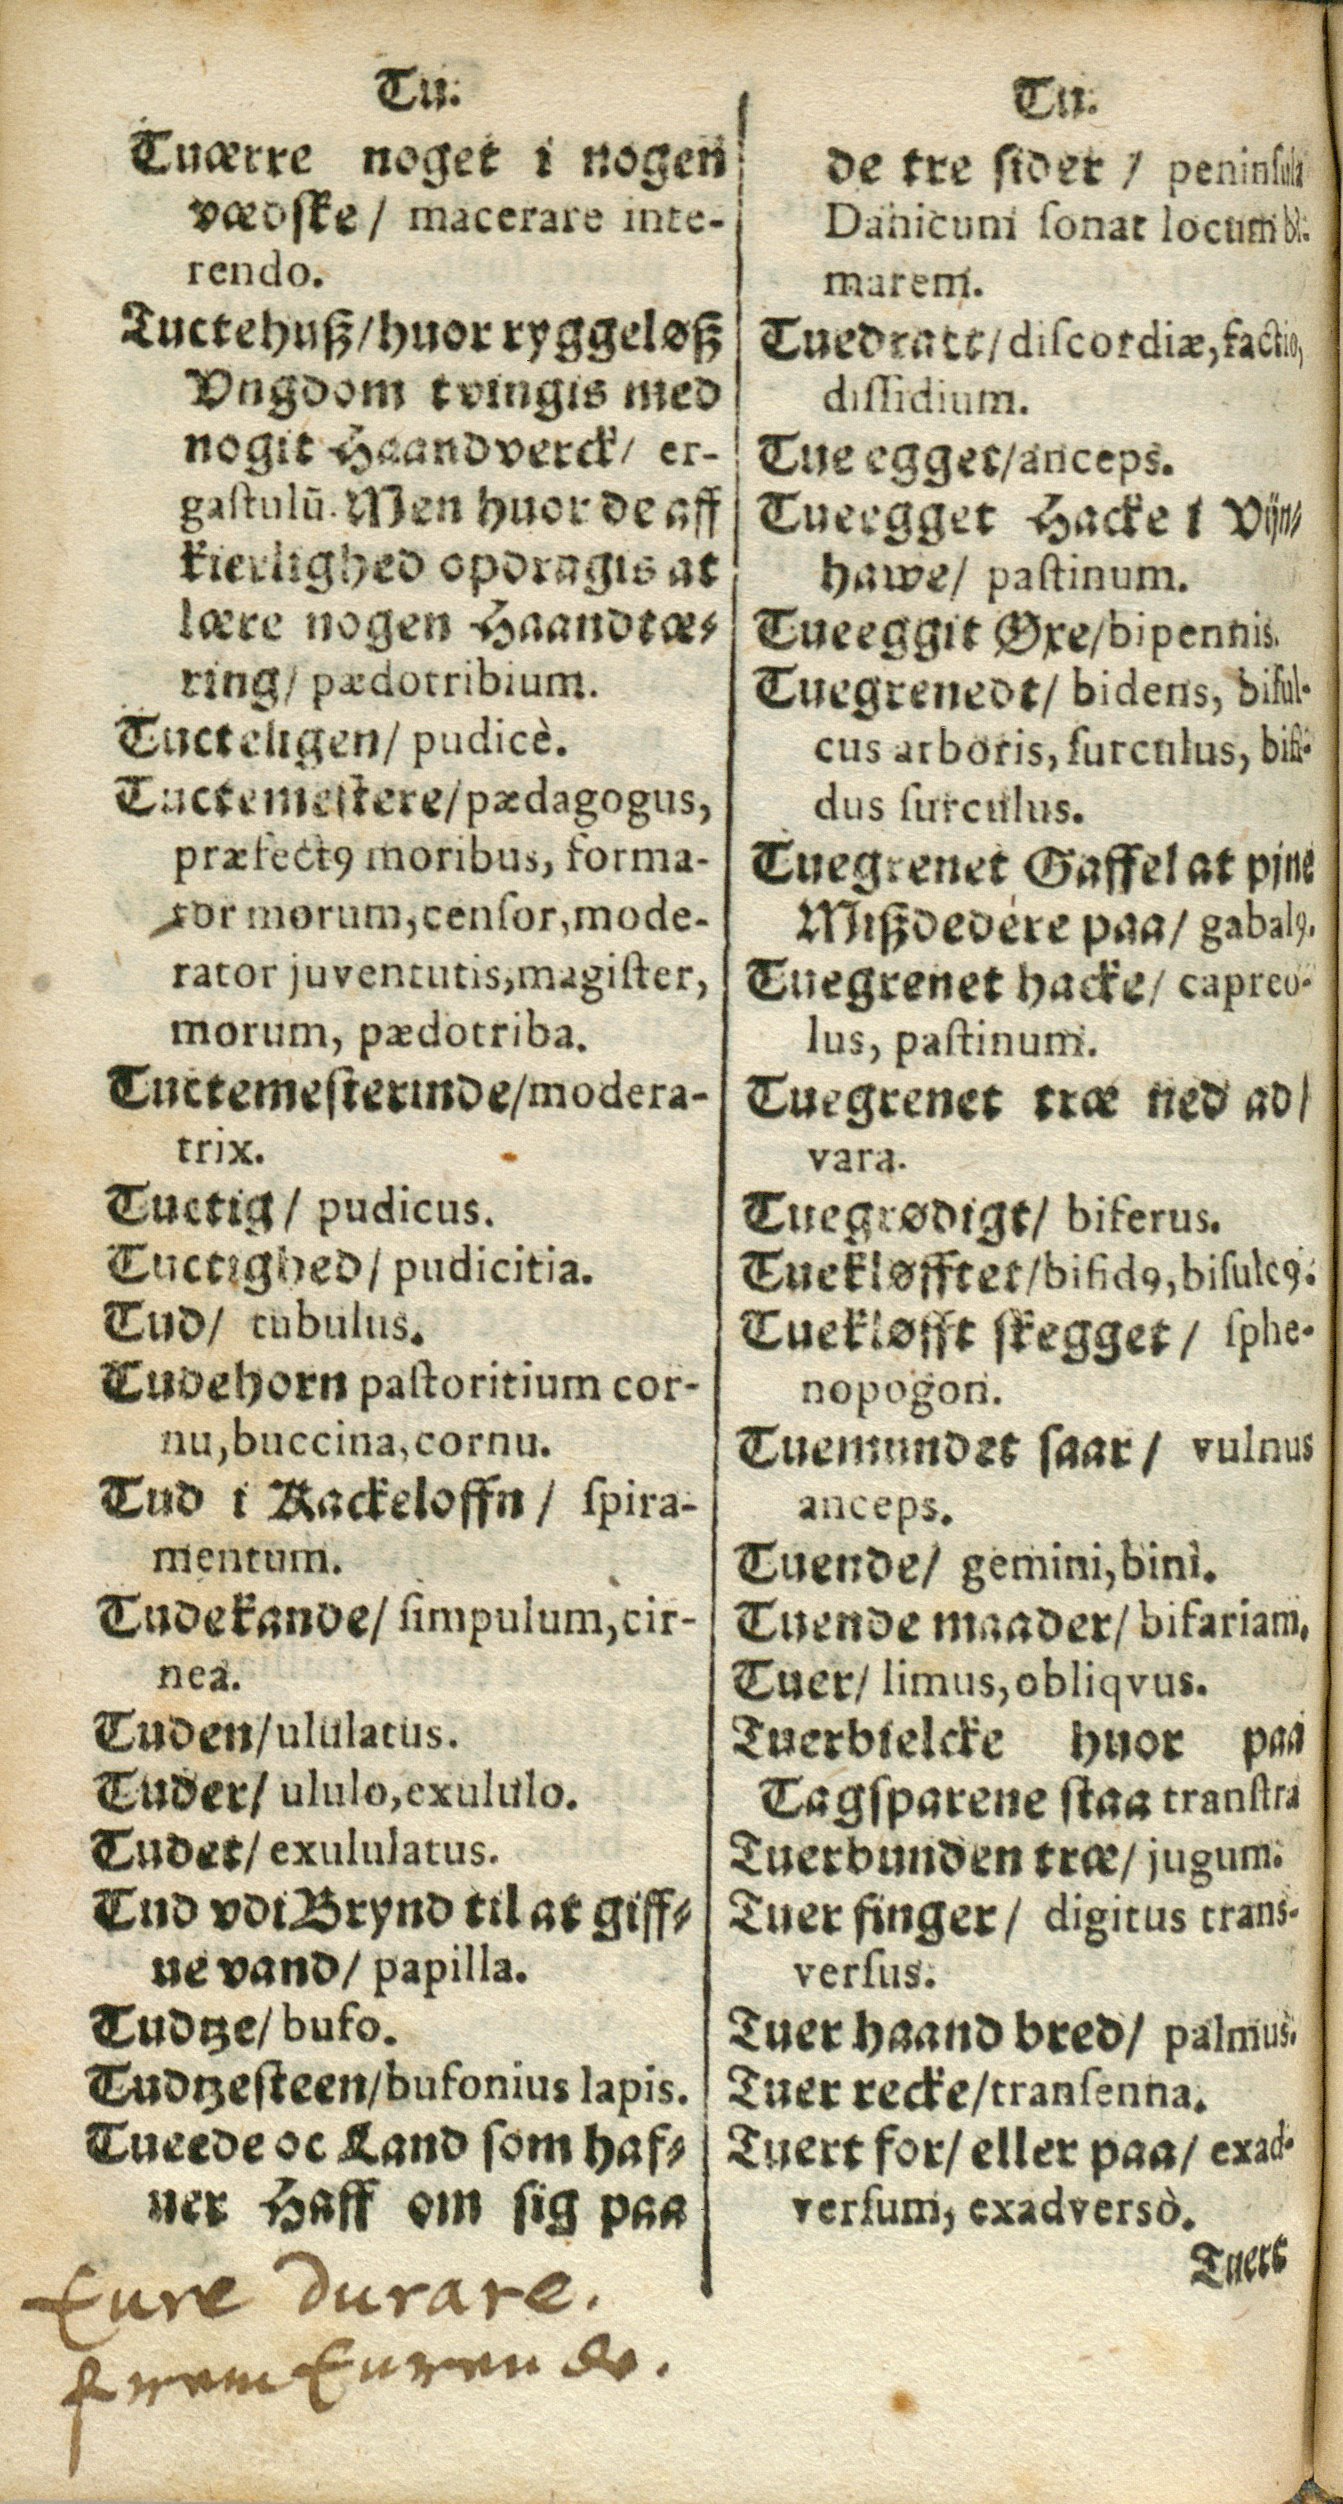 Tu.
Tuærre noget i nogen
vædske/ macerare inte-
rendo.
Tuctehuß/huor ryggeløß
Vngdom tvingis med
nogit Haandverck/ er-
gaſtulū. Men huor de aff
kierlighed opdragis at
lære nogen Haandtæ-
ring/ pædotribium.
Tucteligen/ pudicè.
Tuctemeſtere/pædagogus,
præfectꝰ moribus, forma-
tor morum,cenſor,mode-
rator juventutis,magiſter,
morum, pædotriba.
Tuctemeſterinde/modera-
trix.
Tuctig/ pudicus.
Tuctighed/ pudicitia.
Tud/ tubulus.
Tudehorn paſtoritium cor-
nu,buccina,cornu.
Tud i Kackeloffn/ ſpira-
mentum.
Tudekande/ ſimpulum,cir-
nea.
Tuden/ululatus.
Tuder/ ululo,exululo.
Tudet/ exululatus.
Tud vdi Brynd til at giff-
ue vand/ papilla.
Tudtze/ bufo.
Tudtzeſteen/bufonius lapis.
Tueede oc Land ſom haf-
uer Haff om ſig paa
Tu.
de tre ſider / peninſula
Danicum ſonat locum bi-
marem.
Tuedratt/ diſcordiæ,factio,
diſſidium.
Tue egget/anceps.
Tueegget Hacke i Vijn-
hawe/ paſtinum.
Tueeggit Øxe/bipennis.
Tuegrenedt/ bidens, biſul-
cus arboris, ſurculus, bifi-
dus ſurculus.
Tuegrenet Gaffel at pjne
Mißdedere paa/ gabalꝰ.
Tuegrenet hacke/ capreo-
lus, paſtinum.
Tuegrenet træ ned ad/
vara.
Tuegrødigt/ biferus.
Tuekløfftet/bifidꝰ,biſulcꝰ.
Tuekløfft ſkegget/ ſphe-
nopogon.
Tuemundet ſaar/ vulnus
anceps.
Tuende/ gemini,bini.
Tuende maader/ bifariam.
Tuer/ limus,obliqvus.
Tuerbielcke huor paa
Tagſparene ſtaa tranſtra
Tuerbunden træ/ jugum.
Tuer finger/ digitus trans-
verſus.
Tuer haand bred/ palmus.
Tuer recke/tranſenna.
Tuert for/ eller paa/ exad-
verſum, exadversò.
Tuert
durare.